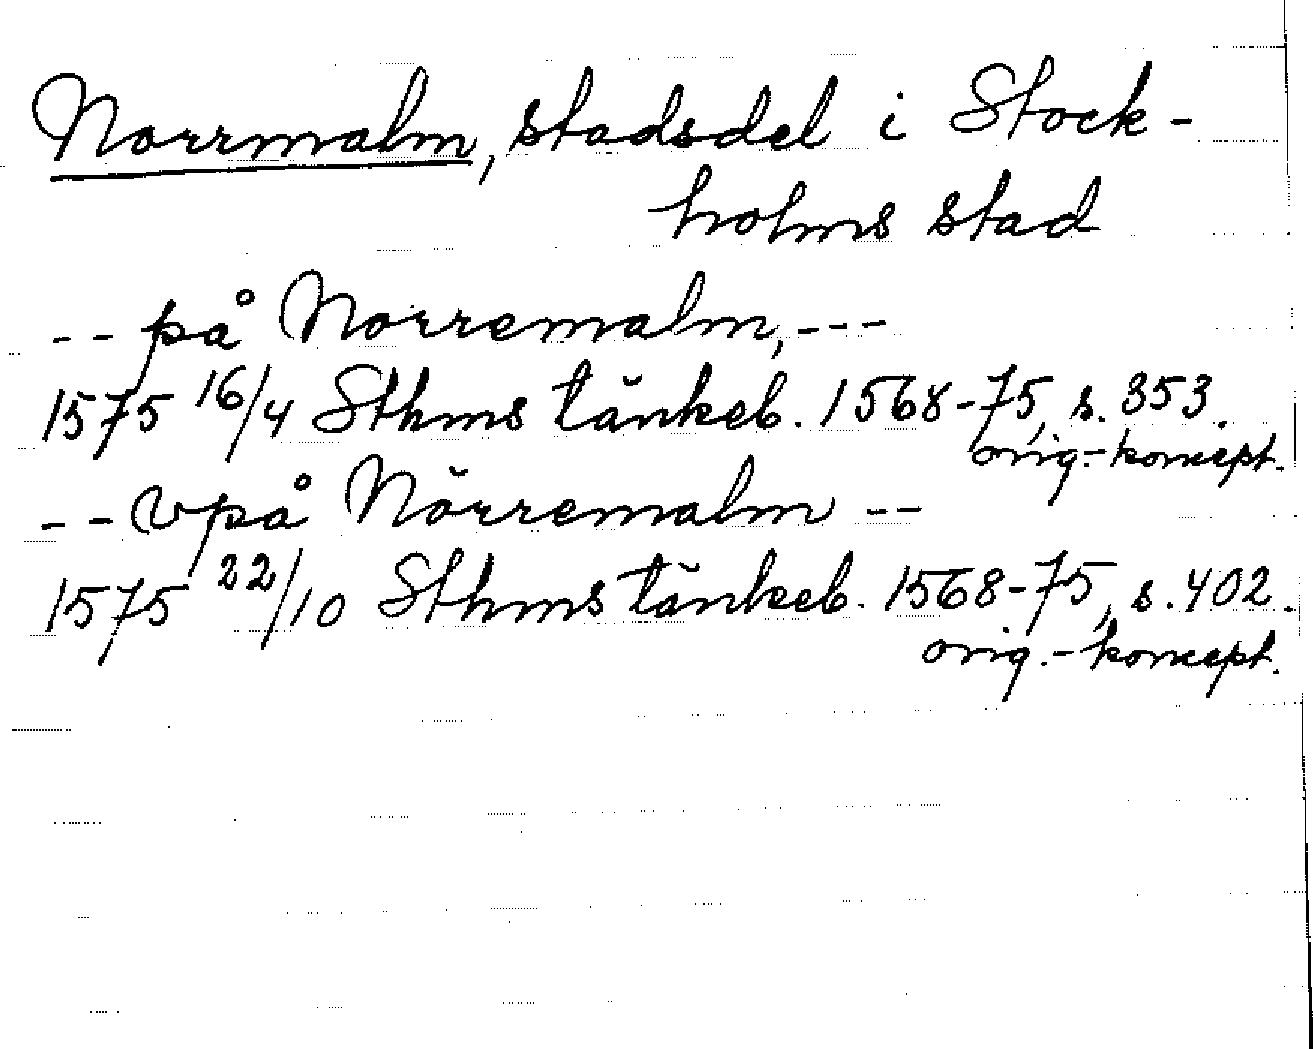 Norrmalm, stadsdel i Stock-
holms stad
-- på Norremalm, ---
1575 16/4 Sthms tänkeb. 1568-75, s. 353.
orig.-koncept.
-- vpå Nörremalm --
1575 22/10 Sthms tänkeb. 1568-75, s. 402.
orig.-koncept.